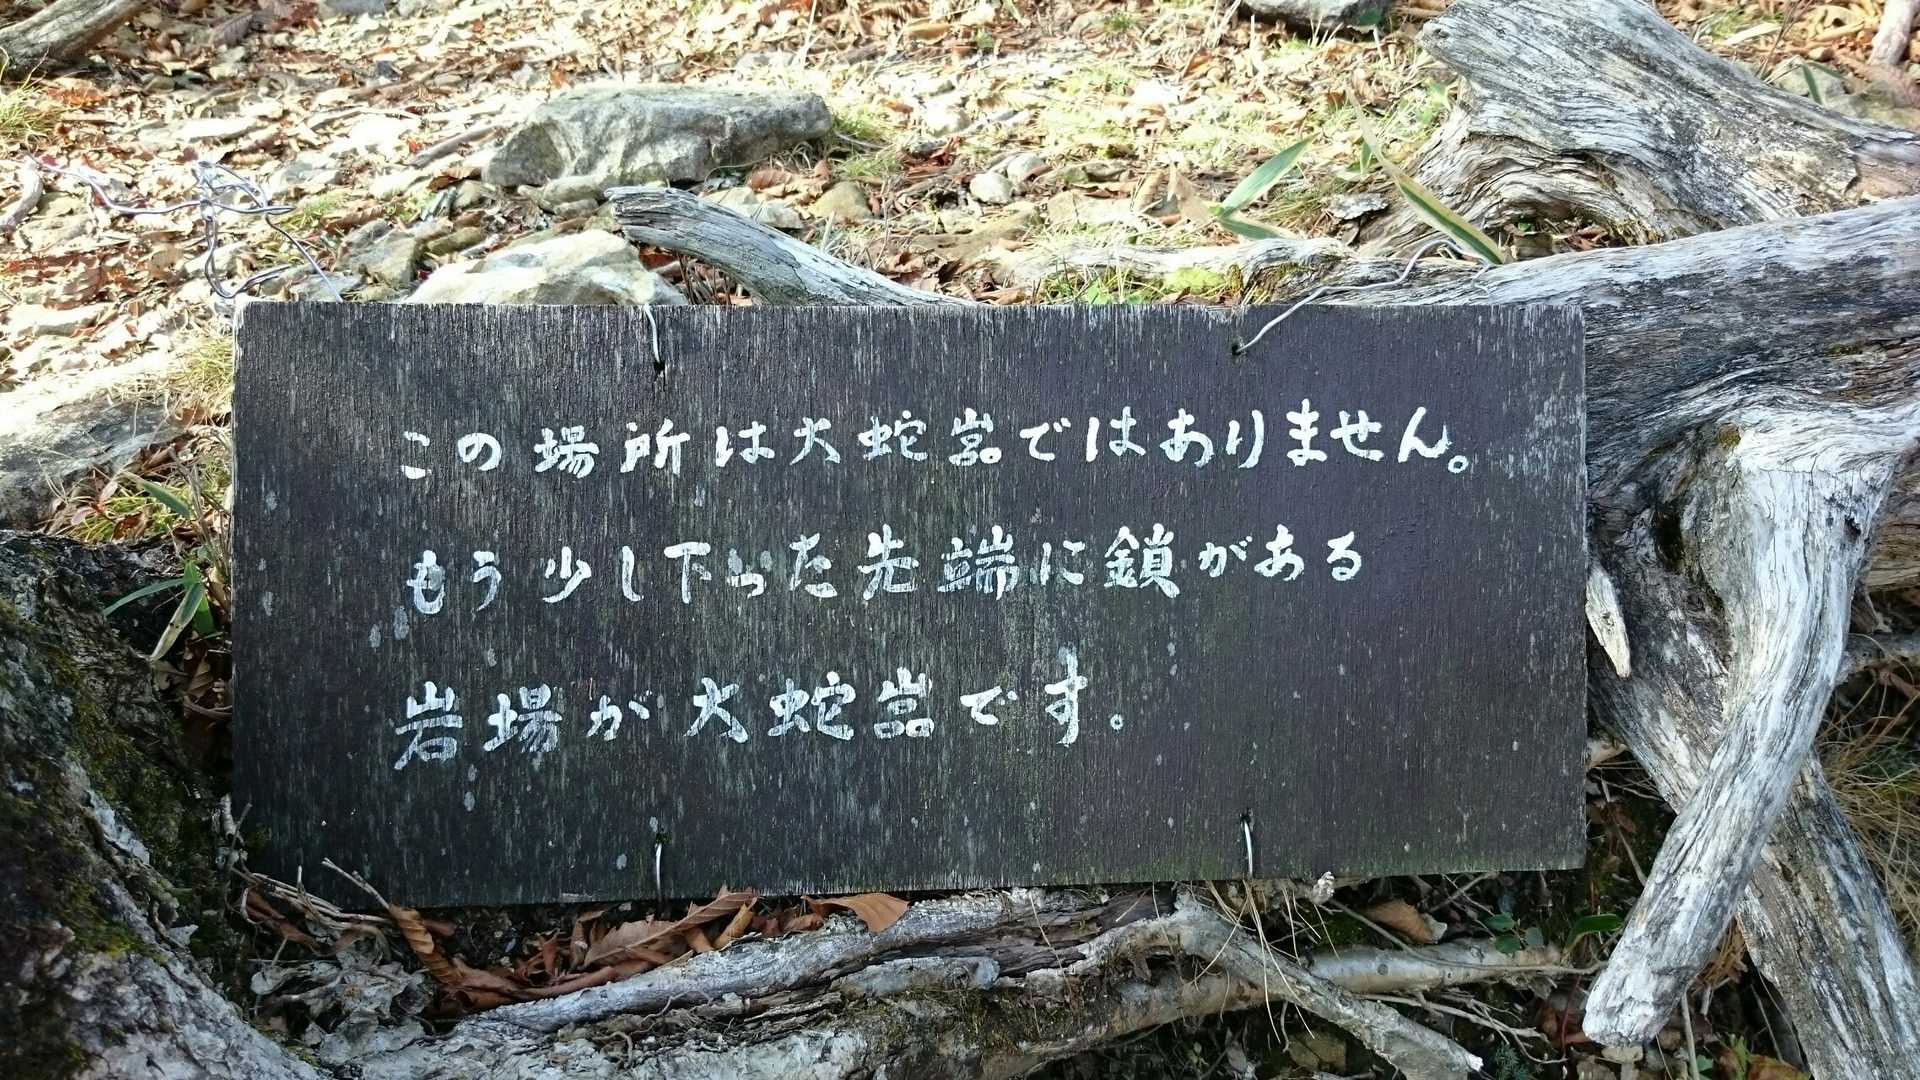 この場所は大蛇嵓ではありません。
もう少し下った先端に鎖がある
岩場が大蛇嵓です。